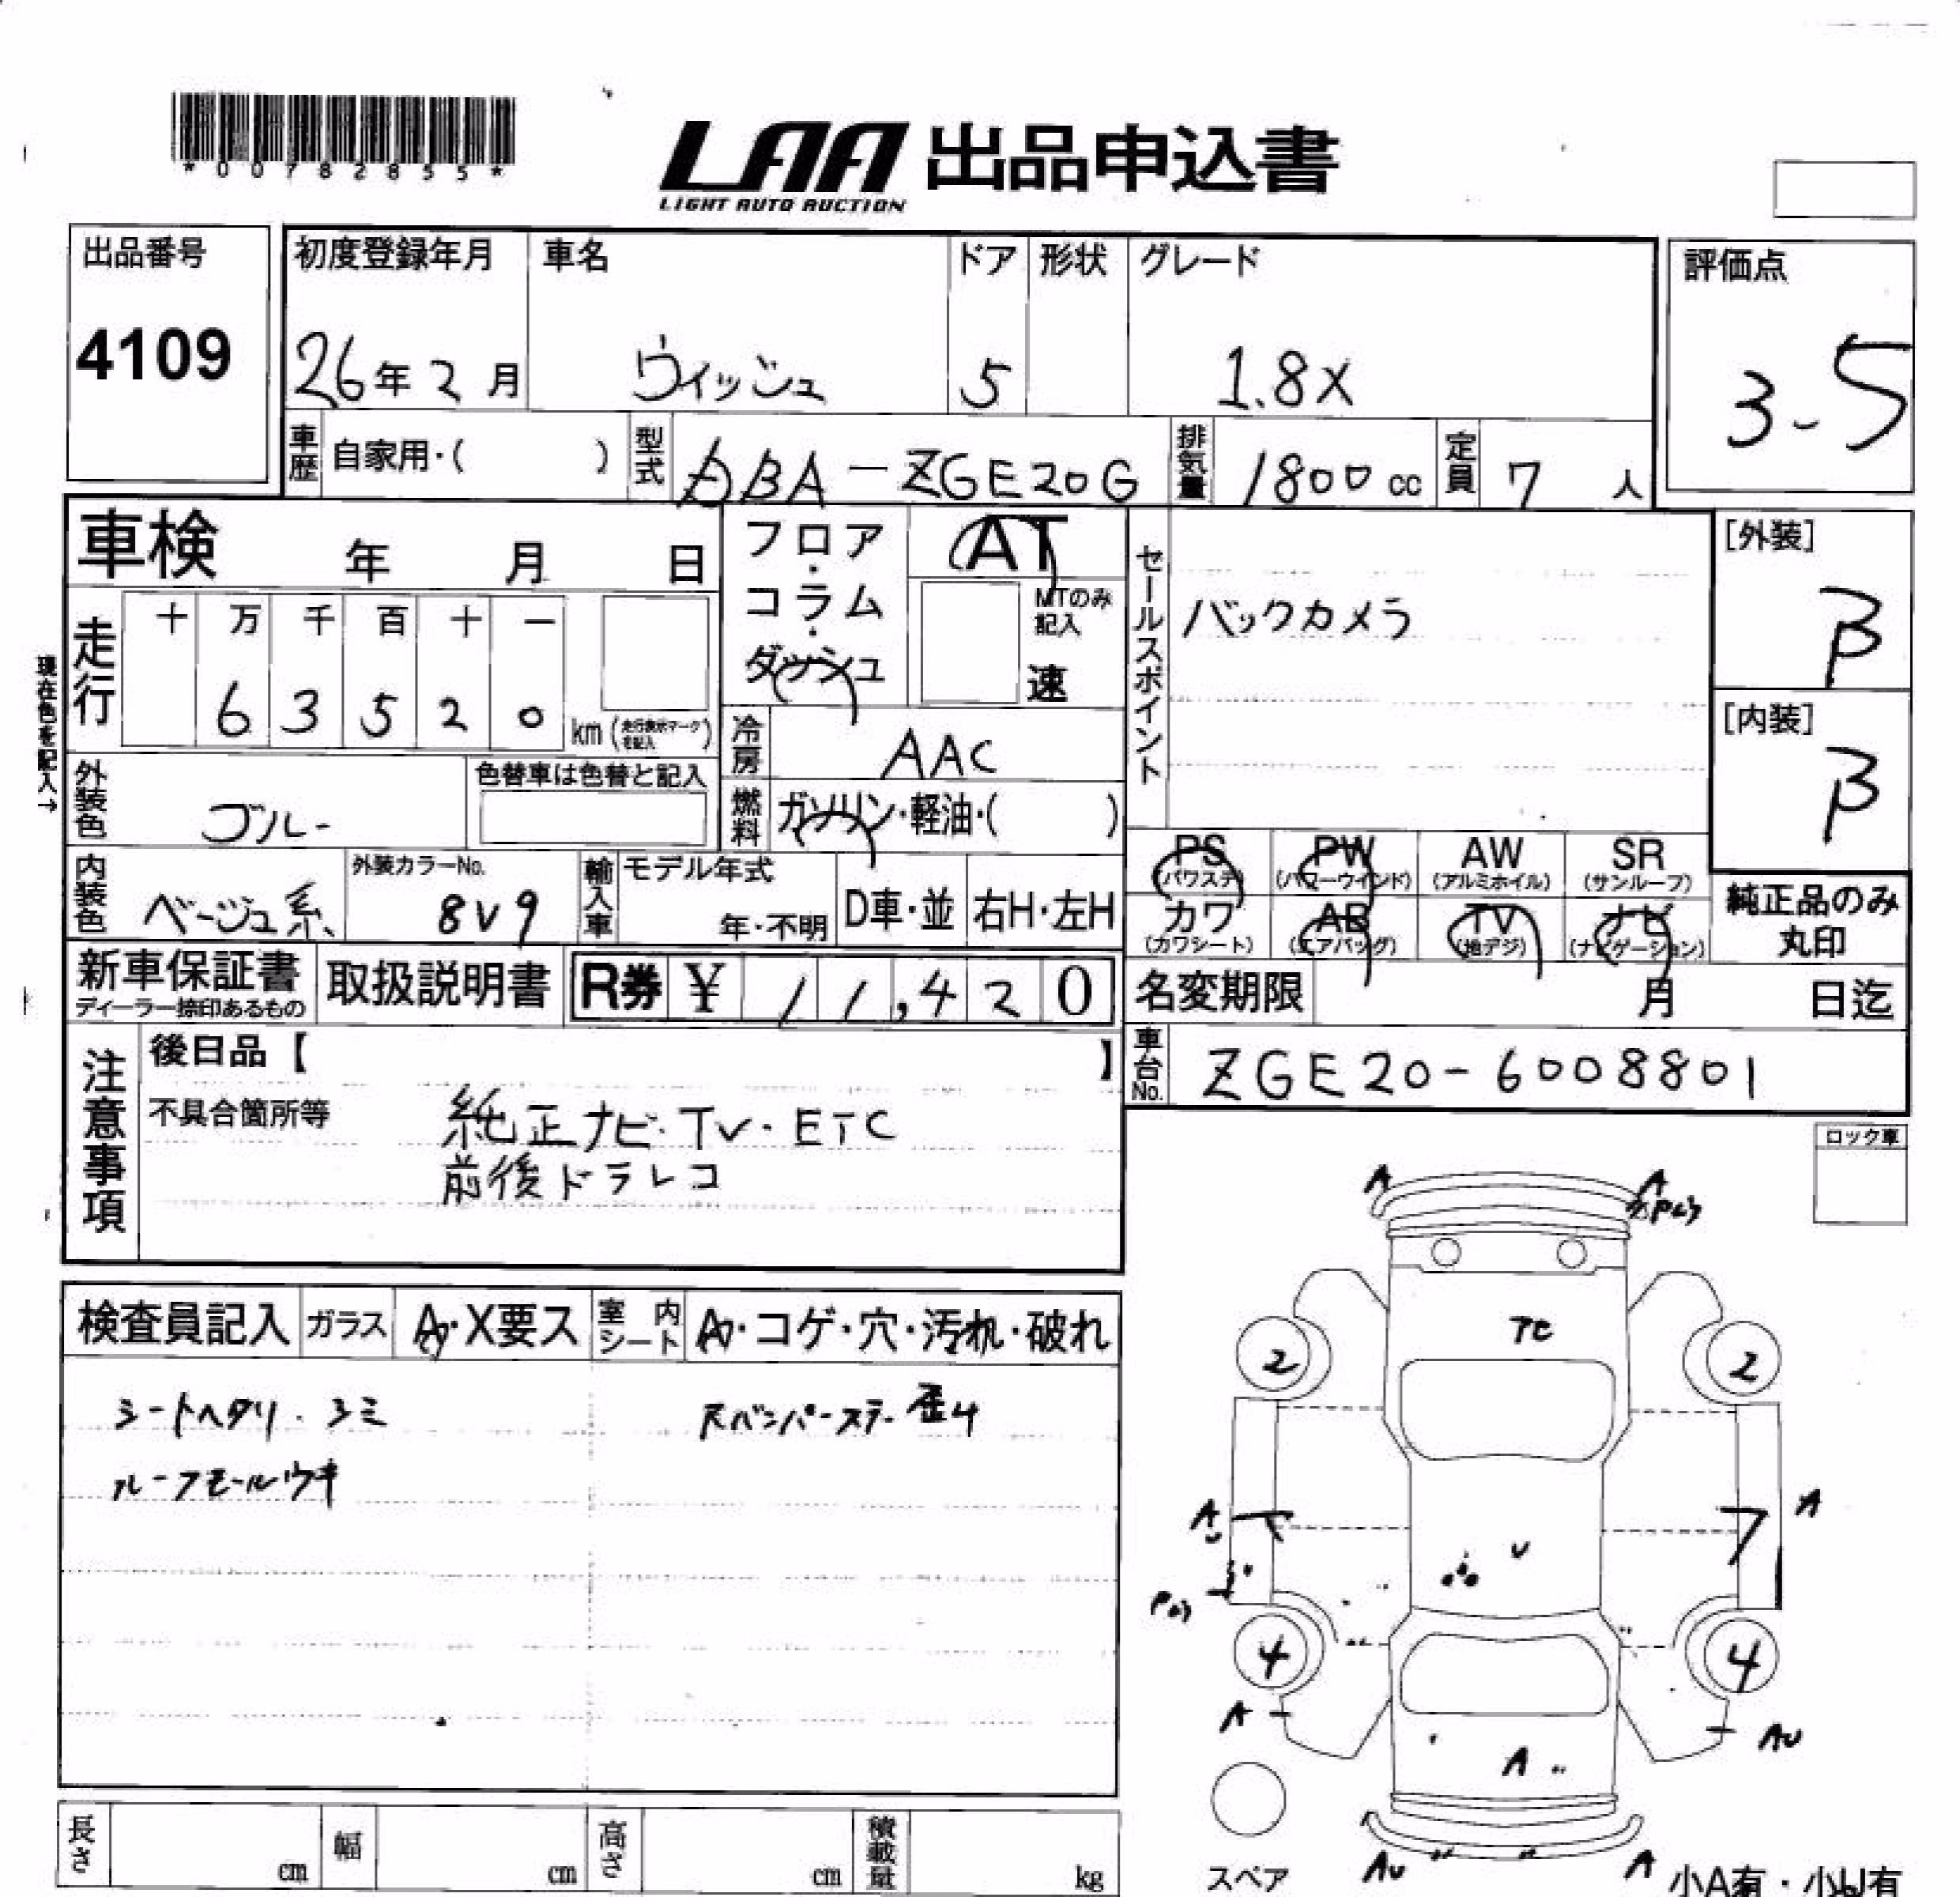 *00782855*
LAA 出品申込書
LIGHT AUTO AUCTION
出品番号
4109
初度登録年月 車名 ドア 形状 グレード
26年2月 ウィッシュ 5 1.8X
評価点
3-5
車歴 自家用・( ) 型式 DBA-ZGE20G 排気量 1800cc 定員 7人
車検 年 月 日
フロア・コラム・ダッシュ
AT
MTのみ記入
速
走行 十 万 千 百 十 一
6 3 5 2 0 km (走行表示マークを記入)
現在色を記入→
冷房 AAC
燃料 ガソリン・軽油・( )
外装色 ブルー
色替車は色替と記入
内装色 ベージュ系
外装カラーNo.
8V9
輸入車 モデル年式
年・不明 D車・並 右H・左H
セールスポイント
バックカメラ
[外装]
B
[内装]
B
PS (パワステ) PW (パワーウインド) AW (アルミホイル) SR (サンルーフ)
カワ (カワシート) AB (エアバッグ) TV (地デジ) ナビ (ナビゲーション)
純正品のみ
丸印
新車保証書
ディーラー捺印あるもの
取扱説明書
R券 ¥ 11,420
名変期限 月 日迄
車台No. ZGE20-6008801
注意事項
後日品【 】
不具合箇所等
純正ナビ・TV・ETC
前後ドラレコ
ロック車
検査員記入 ガラス A・X要ス 室内シート A・コゲ・穴・汚れ・破れ
シートヘタリ・シミ
ルーフモールウキ
A A
2 2
A A
U
4 4
A AU
A
AU A
スペア
小A有・小U有
長さ cm 幅 cm 高さ cm 積載量 kg